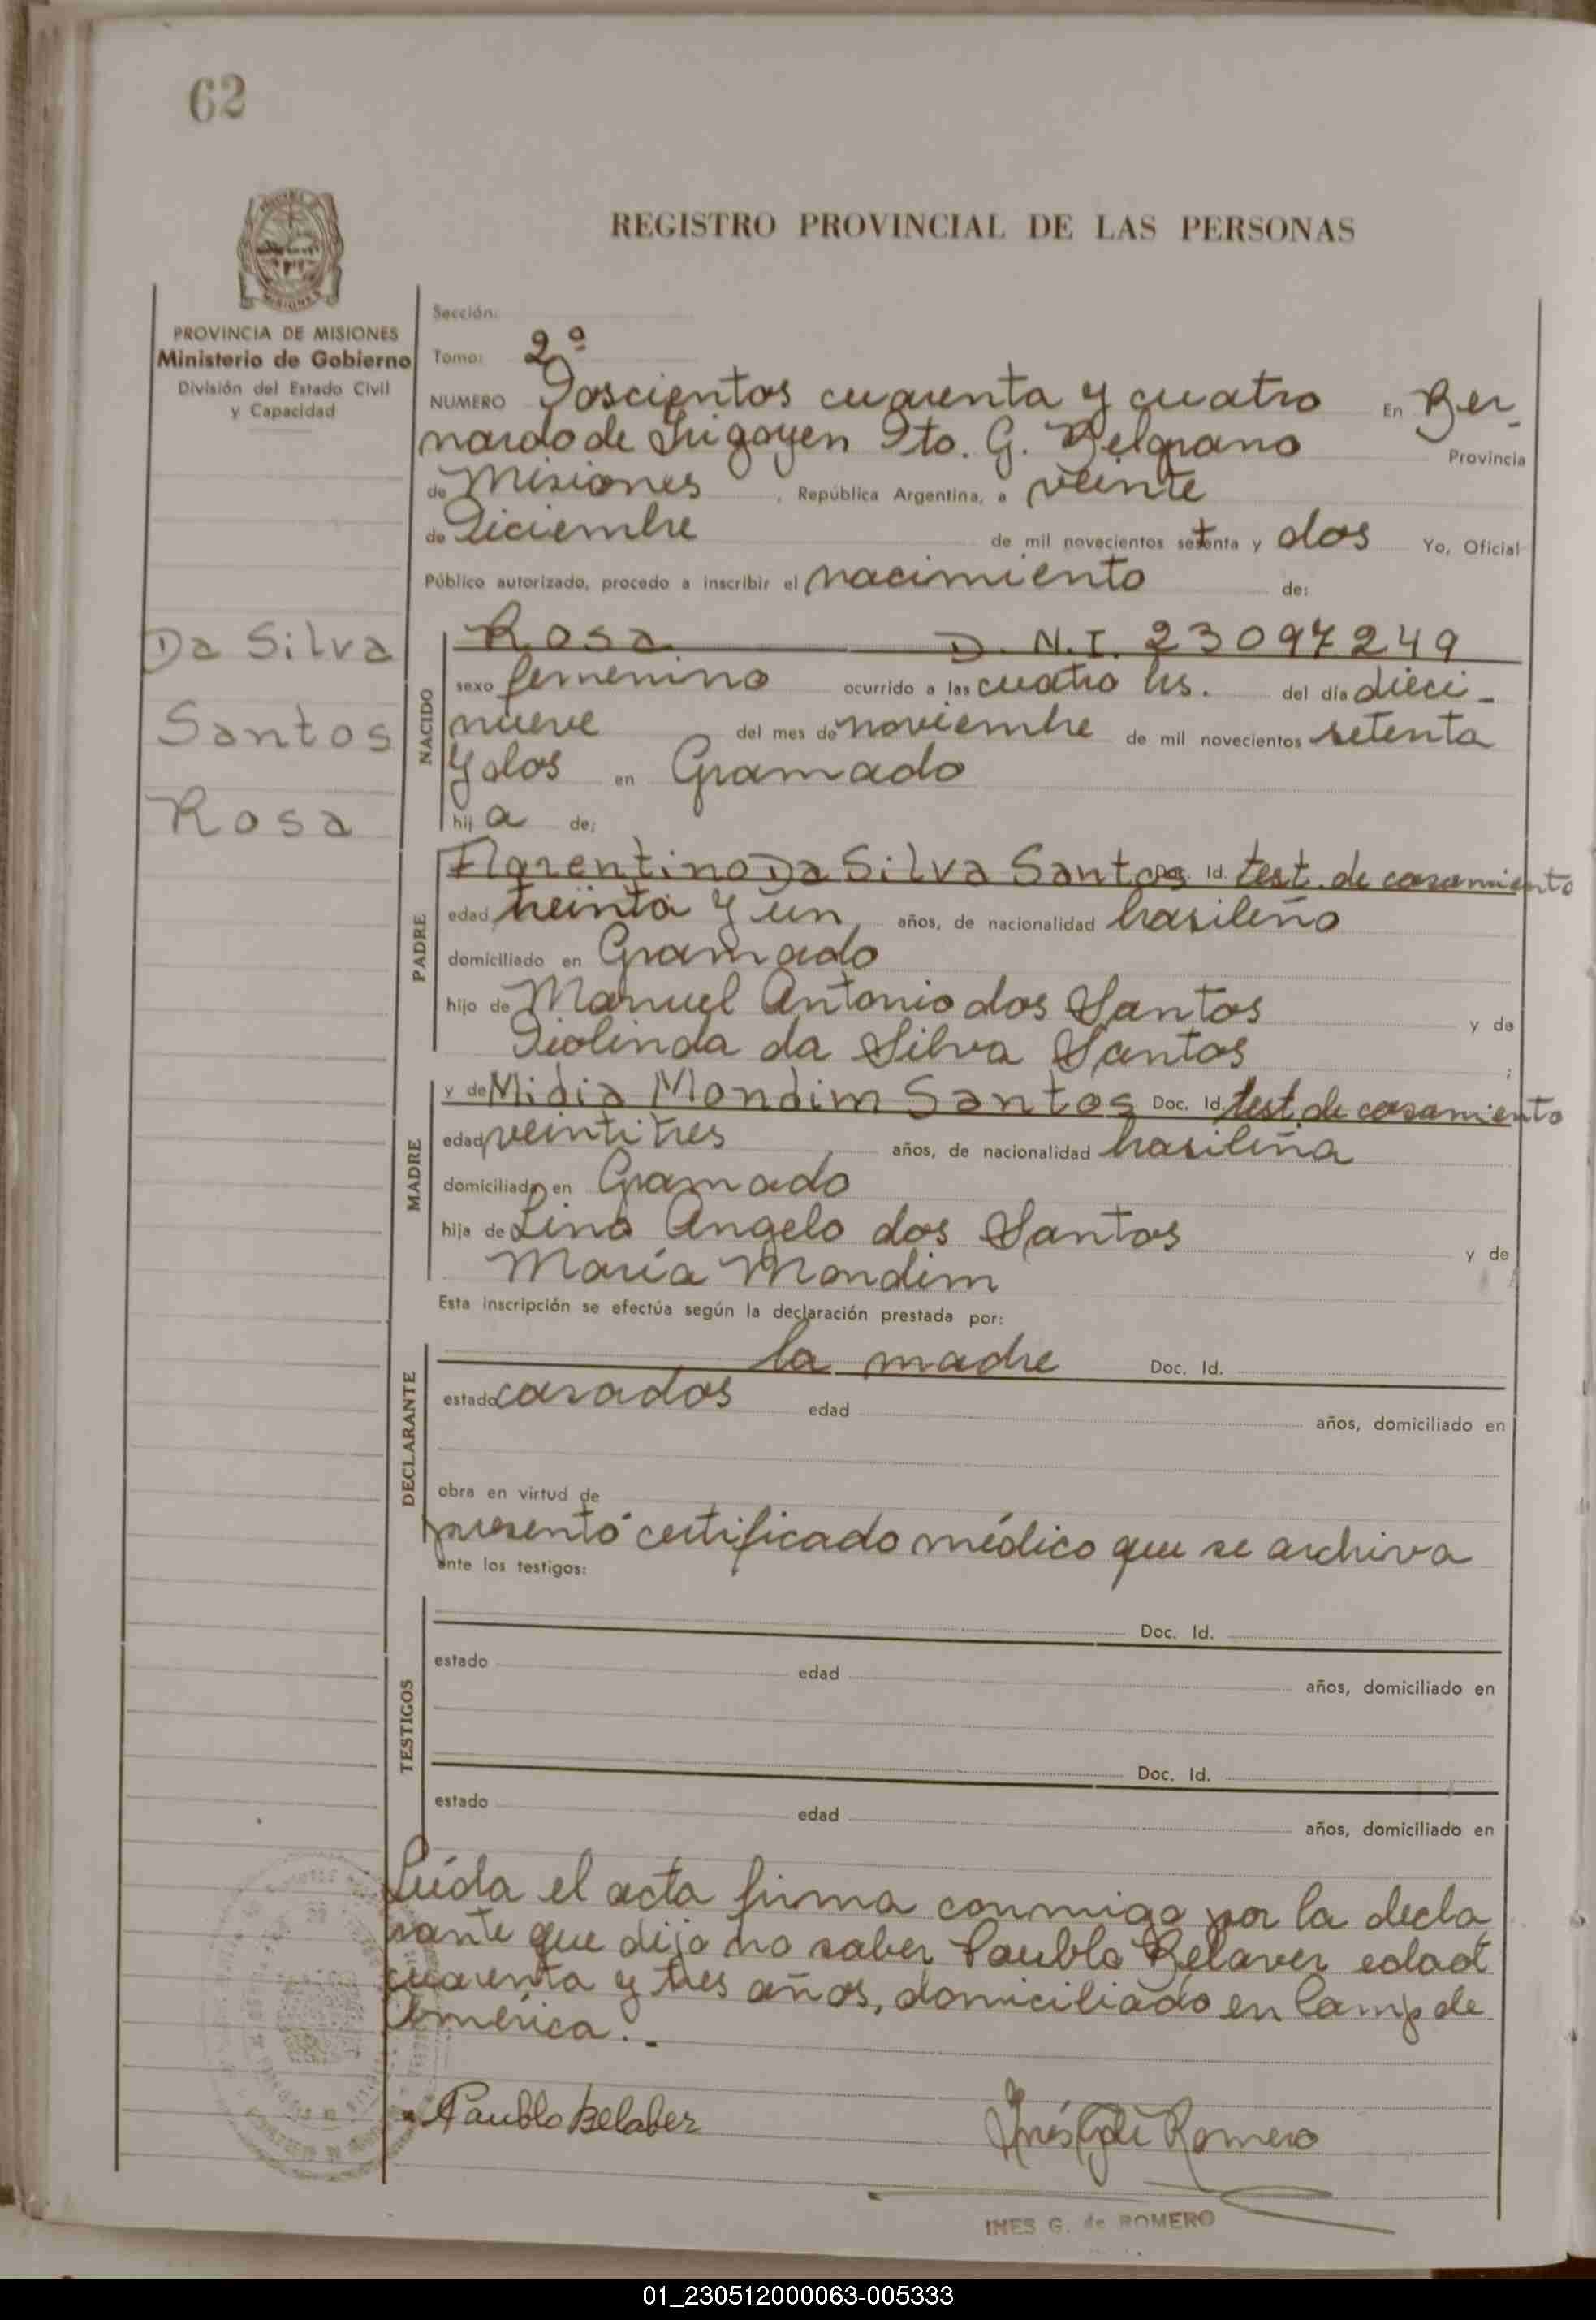 62
REGISTRO PROVINCIAL DE LAS PERSONAS
PROVINCIA DE MISIONES
Ministerio de Gobierno
División del Estado Civil
y Capacidad
Da Silva
Santos
Rosa
Sección:
Tomo: 2º
NUMERO Doscientos cuarenta y cuatro En Ber-
nardo de Irigoyen Dto. G. Belgrano Provincia
de Misiones, República Argentina, a veinte
de Diciembre de mil novecientos setenta y dos Yo, Oficial
Público autorizado, procedo a inscribir el nacimiento de:
NACIDO
Rosa D. N. I. 23097249
sexo femenino ocurrido a las cuatro hs. del día dieci-
nueve del mes de noviembre de mil novecientos setenta
y dos en Gramado
hij a de:
PADRE
Florentino Da Silva Santos Id. test. de casamiento
edad treinta y un años, de nacionalidad brasileño
domiciliado en Gramado
hijo de Manuel Antonio dos Santos y de
Diolinda da Silva Santos ;
MADRE
y de Midia Mondim Santos Doc. Id. test. de casamiento
edad veintitres años, de nacionalidad brasileña
domiciliada en Gramado
hija de Lino Angelo dos Santos y de
María Mondim
Esta inscripción se efectúa según la declaración prestada por:
DECLARANTE
la madre Doc. Id.
estado casados edad años, domiciliado en
obra en virtud de
presentó certificado médico que se archiva
ante los testigos:
TESTIGOS
Doc. Id.
estado edad años, domiciliado en
Doc. Id.
estado edad años, domiciliado en
Leída el acta firma conmigo por la decla
rante que dijo no saber Paublo Belaver edad
cuarenta y tres años, domiciliado en Camp de
América.-
Paublo Belaber
Inés G de Romero
INES G. de ROMERO
01_230512000063-005333